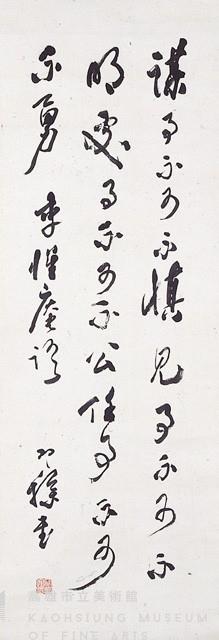 謀事不可不慎見事不可不
明處事不可不公任事不可
不勇 李惺庵語
高雄市立美術館
KAOHSIUNG MUSEUM
OF FINE ARTS